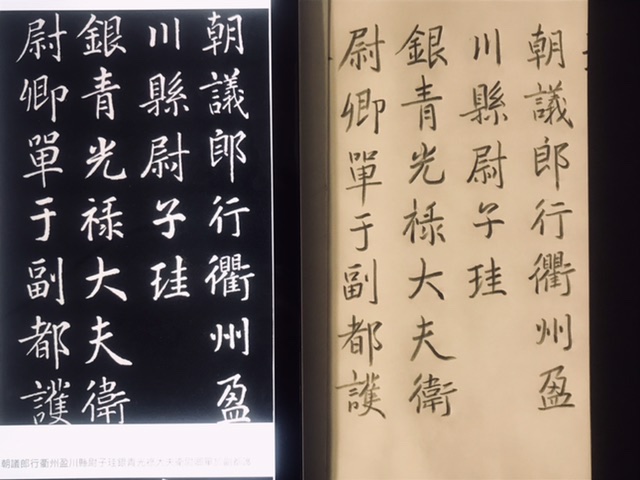 朝議郎行衢州盈
川縣尉子珪
銀青光祿大夫衛
尉卿單于副都護
朝議郎行衢州盈川縣尉子珪銀青光祿大夫衛尉卿單于副都護
朝議郎行衢州盈
川縣尉子珪
銀青光祿大夫衛
尉卿單于副都護